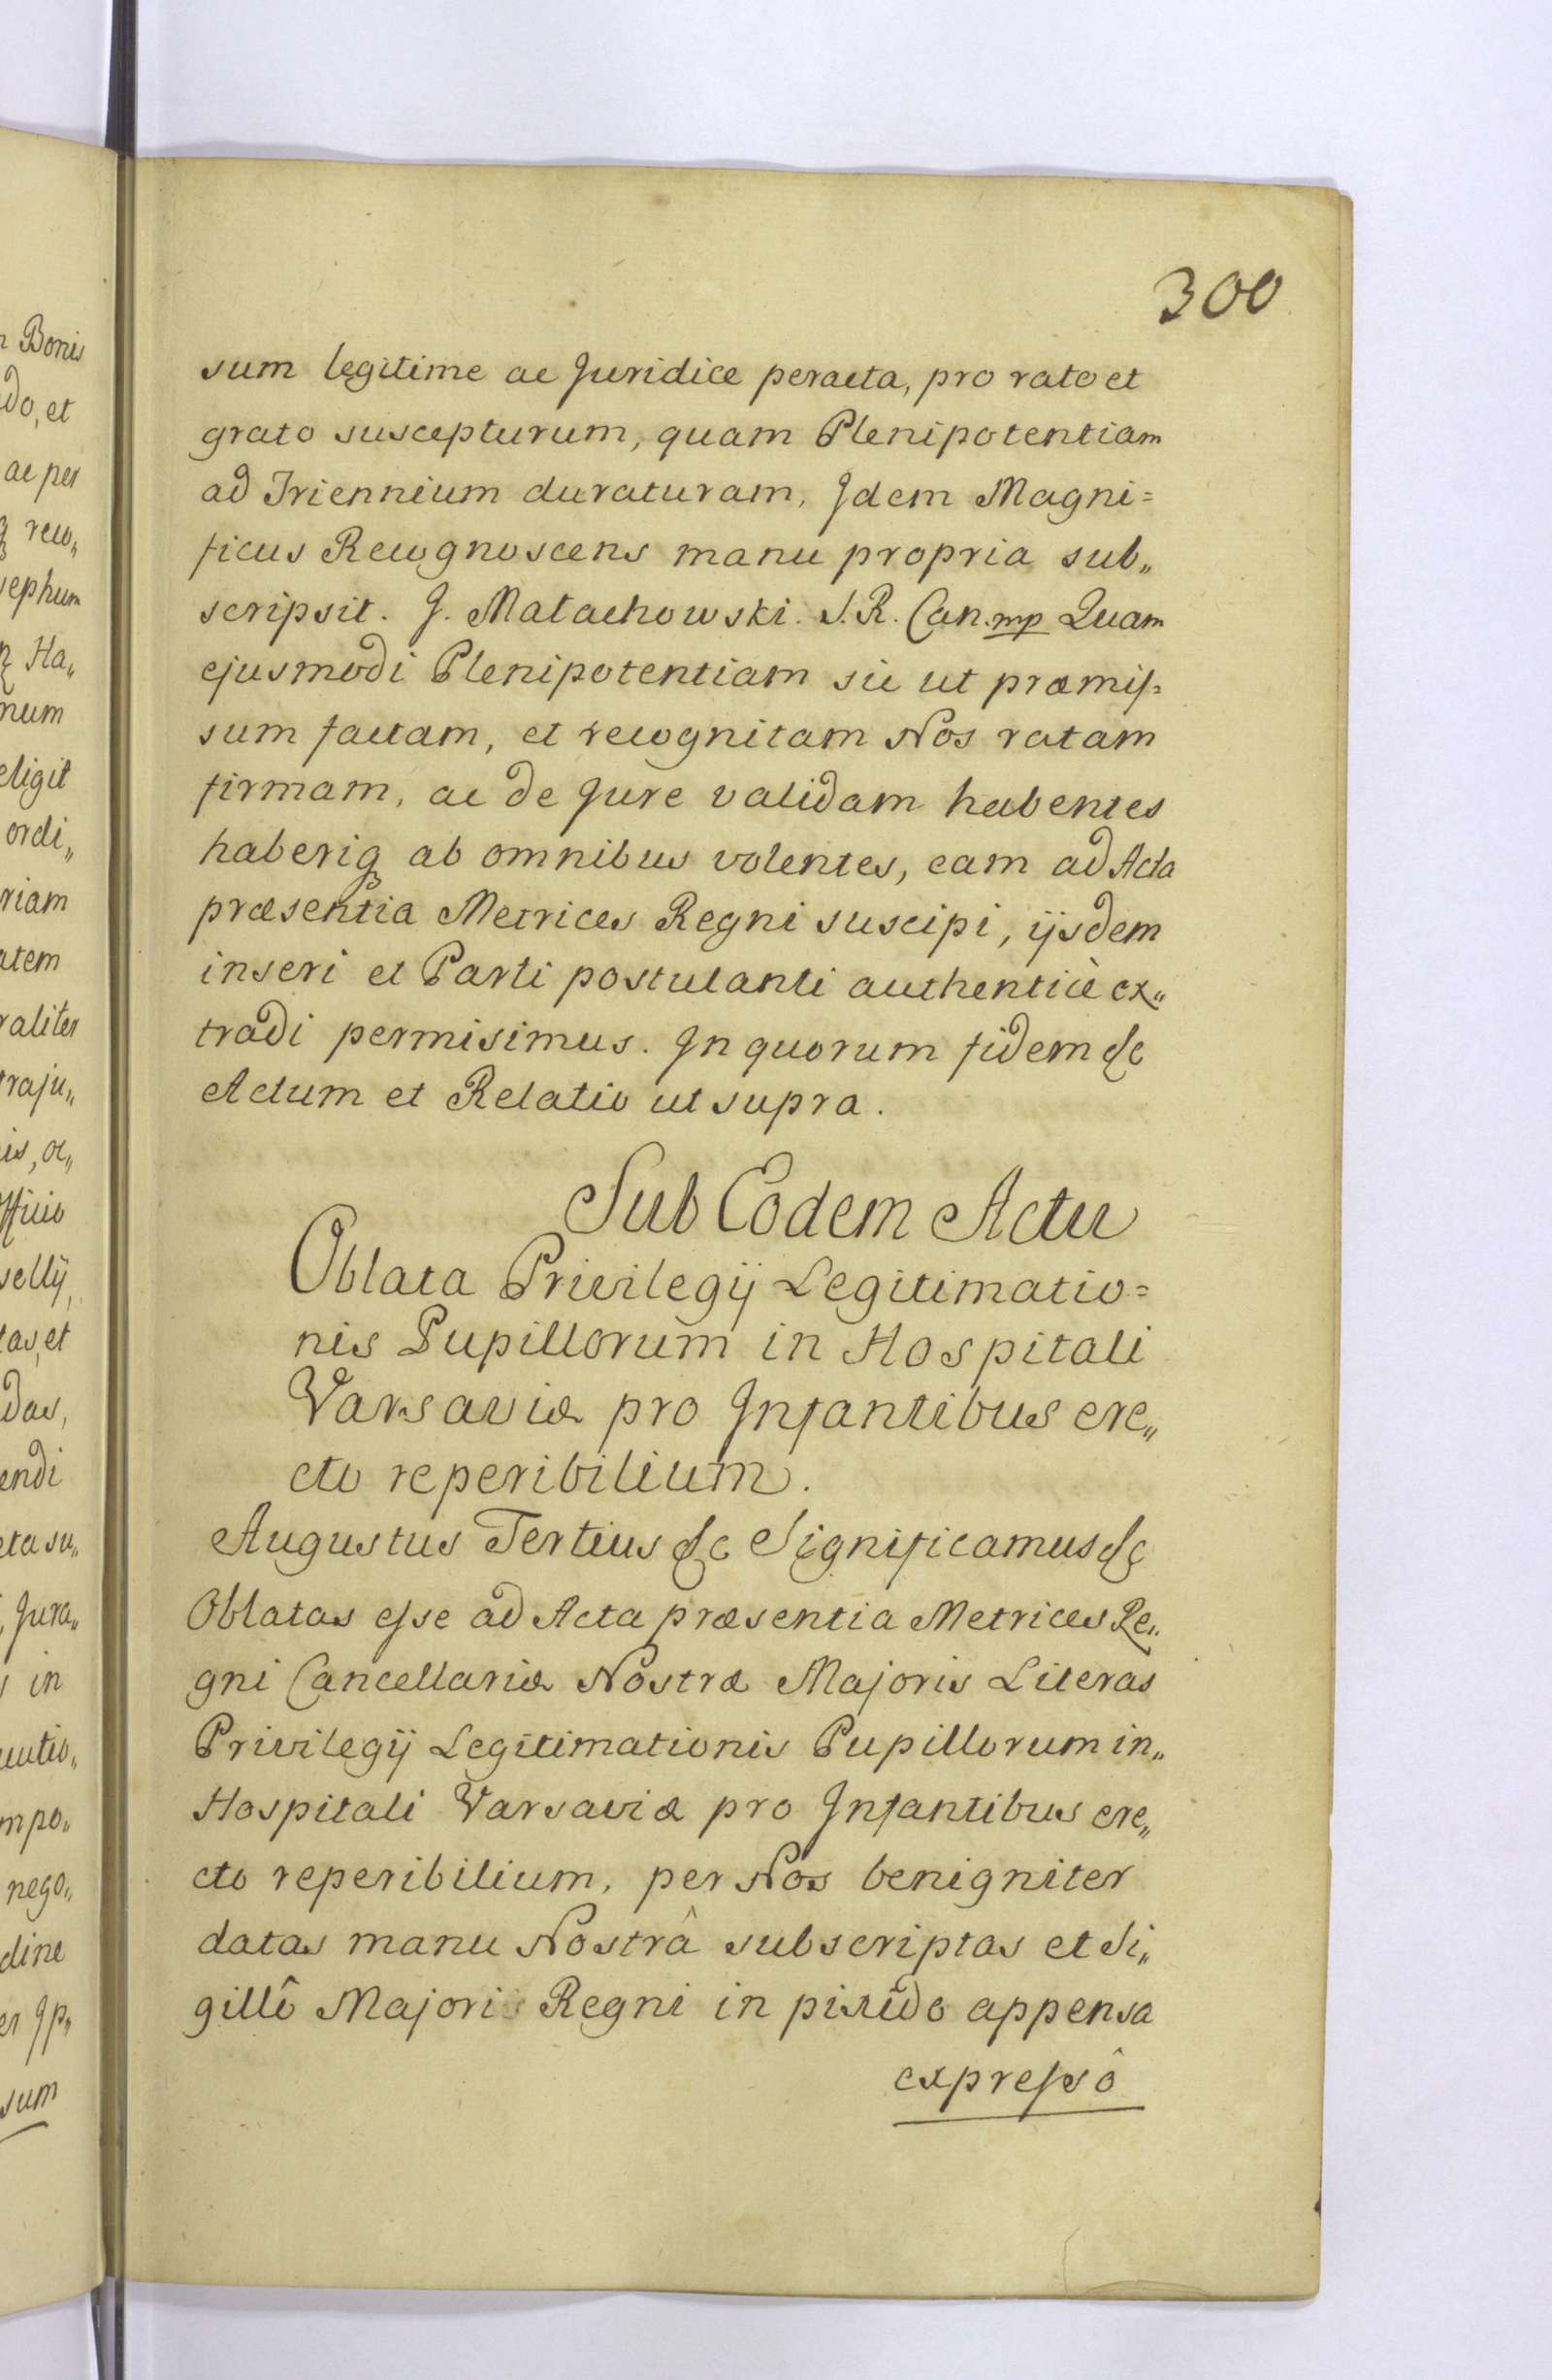 300
sum legitime ac Juridice peracta, pro rato et
grato suscepturum, quam Plenipotentiam
ad Triennium duraturam, Idem Magni=
ficus Recognoscens manu propria sub„
scripsit. J. Małachowski. S. R. Can. mp Quam
ejusmodi Plenipotentiam sic ut præmiſ=
sum factam, et recognitam Nos ratam
firmam, ac de Jure validam habentes
haberiq3 ab omnibus volentes, eam ad Acta
præsentia Metrices Regni suscipi, ijsdem
inseri et Parti postulanti authenticè ex„
tradi permisimus. In quorum fidem &c
Actum et Relatio ut supra.
Sub Eodem Actu
Oblata Privilegij Legitimatio=
nis Pupillorum in Hospitali
Varsaviæ pro Infantibus ere„
cto reperibilium.
Augustus Tertius &c Significamus &c
Oblatas eſse ad Acta præsentia Metrices Re„
gni Cancellariæ Nostræ Majoris Literas
Privilegij Legitimationis Pupillorum in„
Hospitali Varsaviæ pro Infantibus ere„
cto reperibilium, per Nos benigniter
datas manu Nostrâ subscriptas et Si„
gillô Majoris Regni in pixide appensa
expreſsô
Bonis
do, et
ac per
reco„
sephum
Ha„
num
eligit
ordi„
riam
atem
raliter
traju„
is, ac„
fficio
selly,
tas, et
das,
endi
eta su„
Jura„
in
utio„
mpo„
nego„
dine
er Ip„
sum